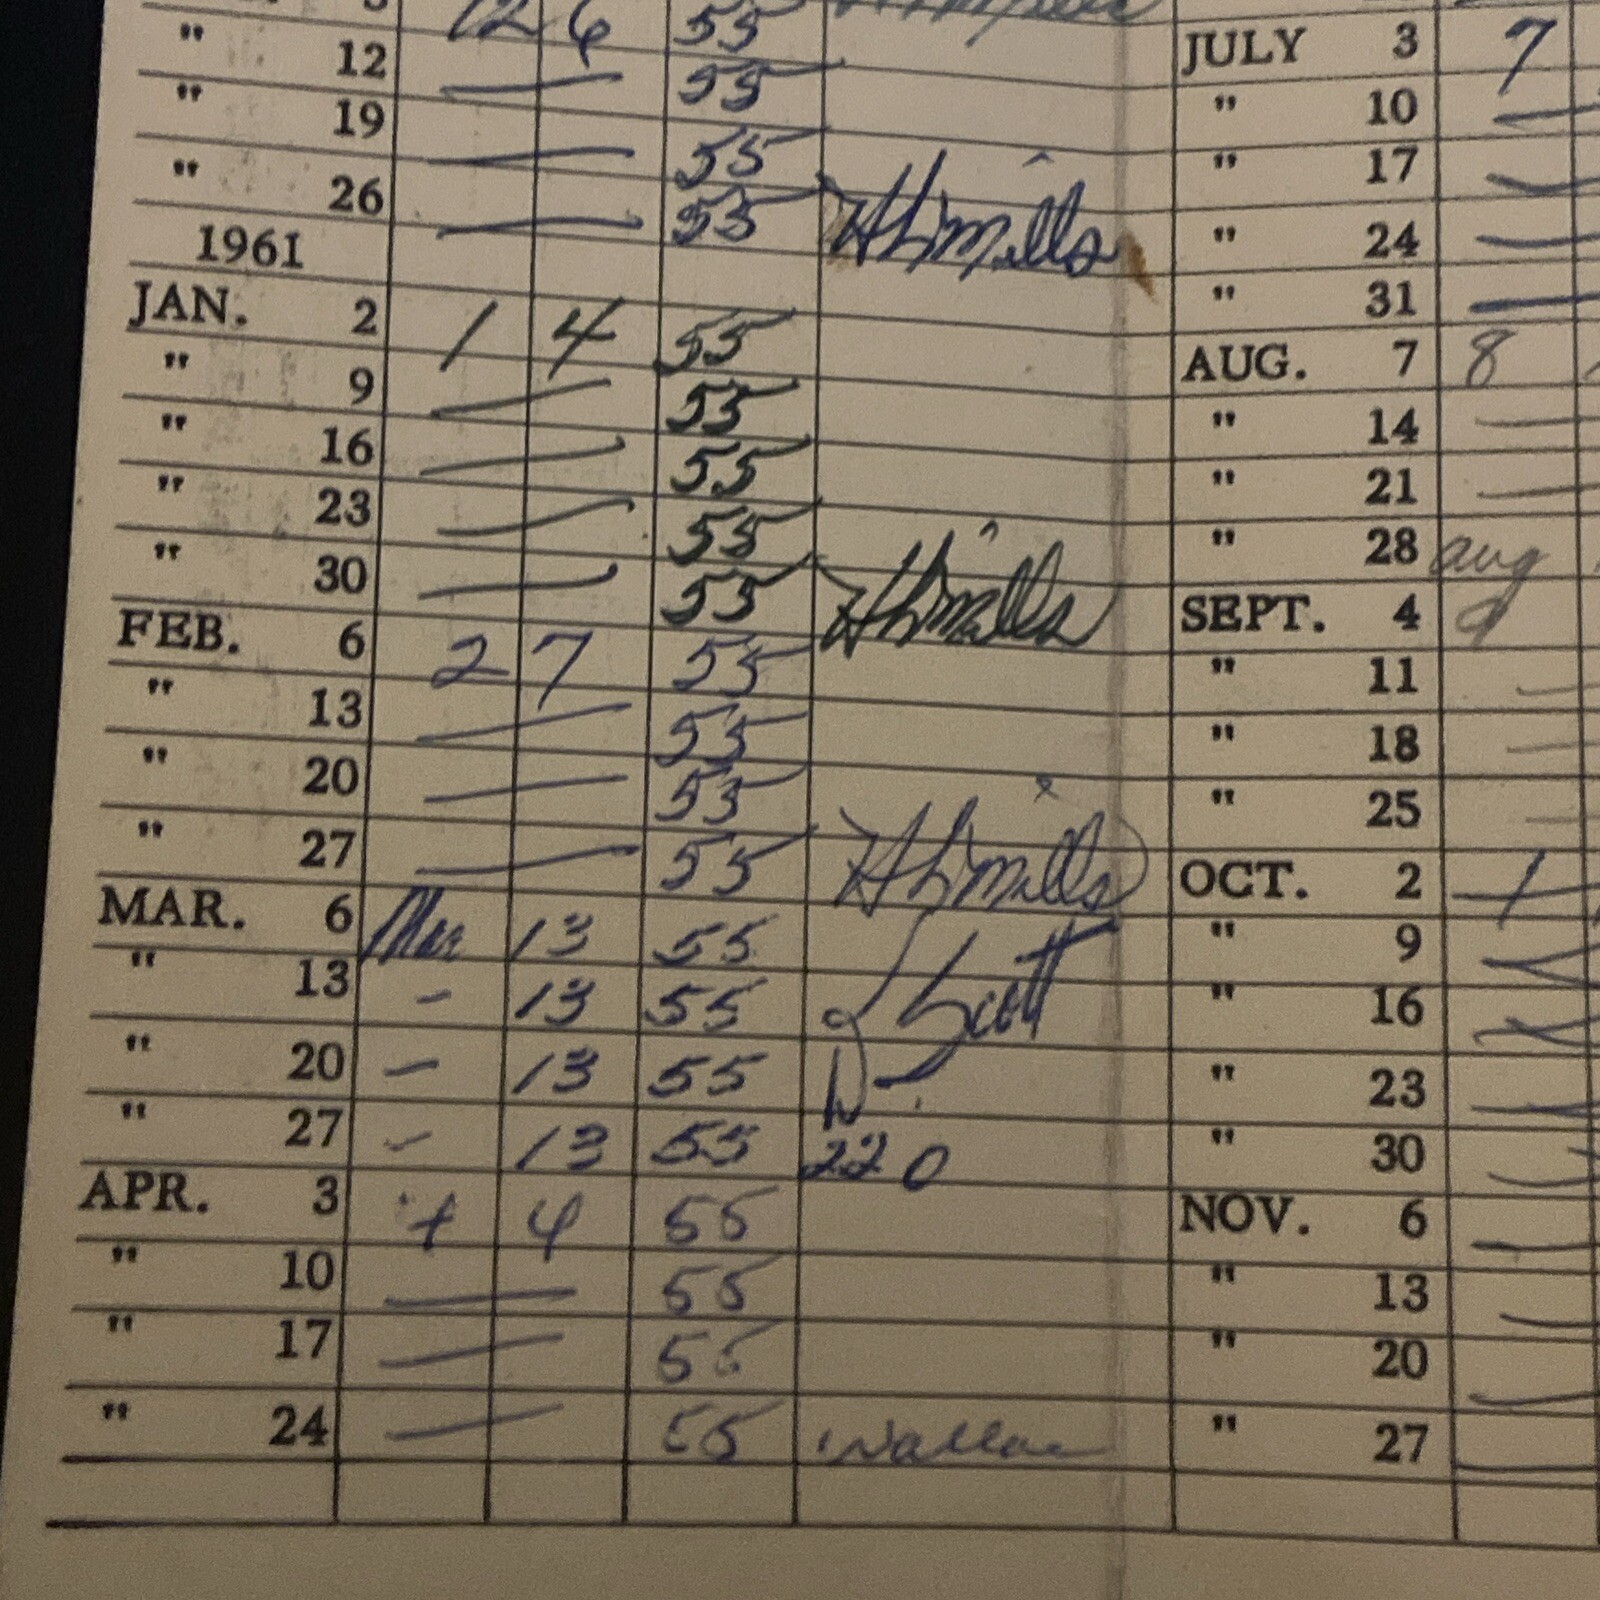 12 6 55
" 12 55
" 19 55
" 26 55 H L Mills
1961
JAN. 2 1 4 55
" 9 55
" 16 55
" 23 55
" 30 55 H L Mills
FEB. 6 2 7 55
" 13 55
" 20 55
" 27 55 H L Mills
MAR. 6 Mar 13 55
" 13 - 13 55 Scott
" 20 - 13 55
" 27 - 13 55 220
APR. 3 4 4 55
" 10 55
" 17 55
" 24 55 Wallace
JULY 3 7
" 10
" 17
" 24
" 31
AUG. 7 8
" 14
" 21
" 28 aug
SEPT. 4 9
" 11
" 18
" 25
OCT. 2 1
" 9
" 16
" 23
" 30
NOV. 6
" 13
" 20
" 27